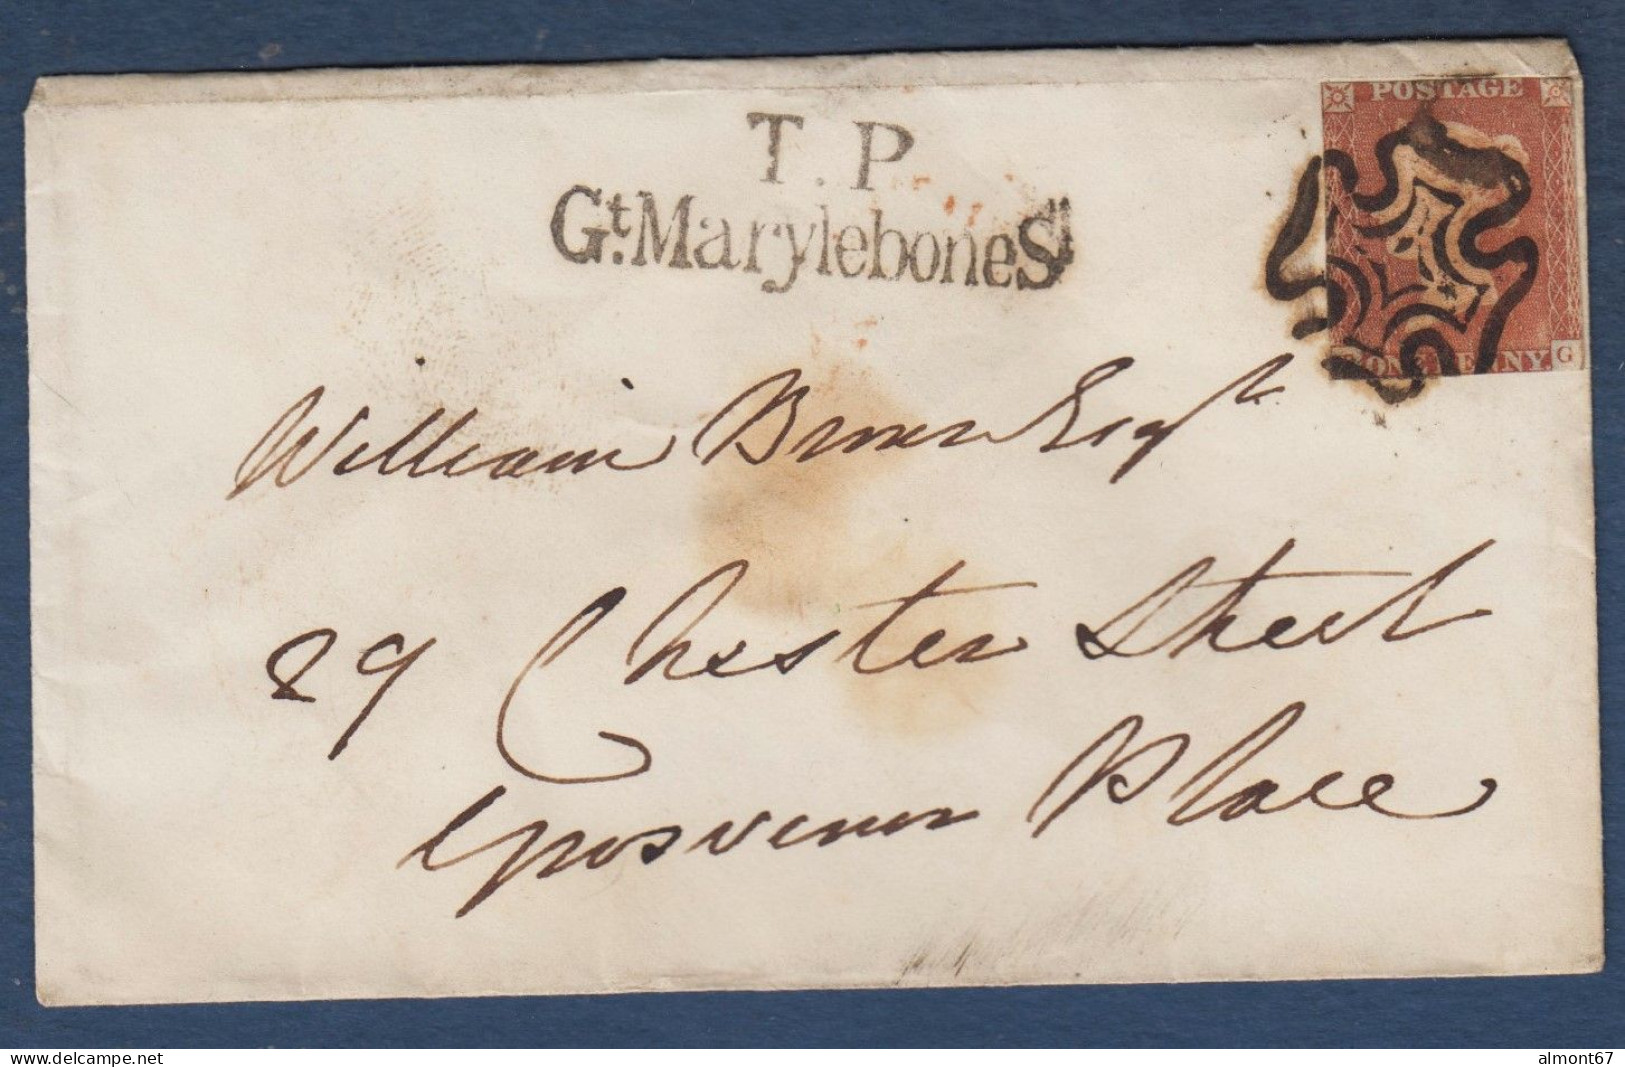 POSTAGE
T. P
Gt. Marylebone St
ONE PENNY.
G
William Esqr
29 Chester Street
Grosvenor Place
delcampe.net
almont67